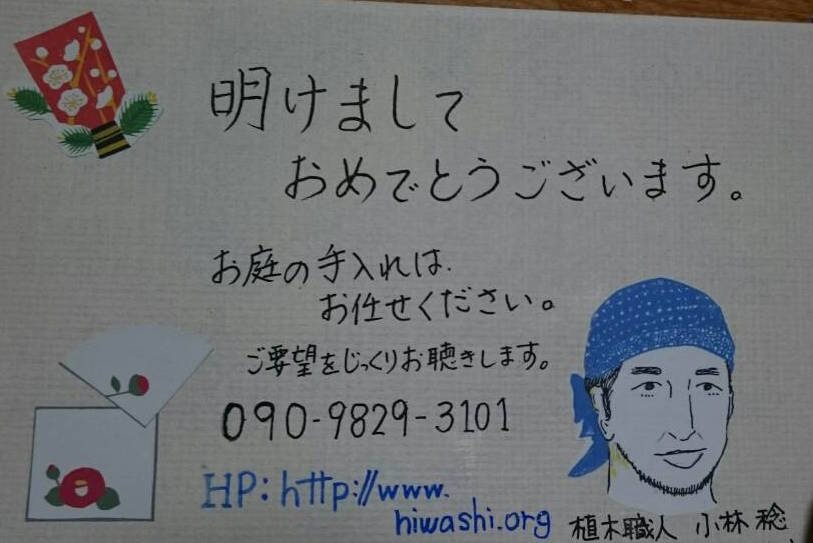 明けまして
おめでとうございます。
お庭の手入れは、
お任せください。
ご要望をじっくりお聴きします。
090-9829-3101
HP: http://www.
niwashi.org
植木職人 小林 稔